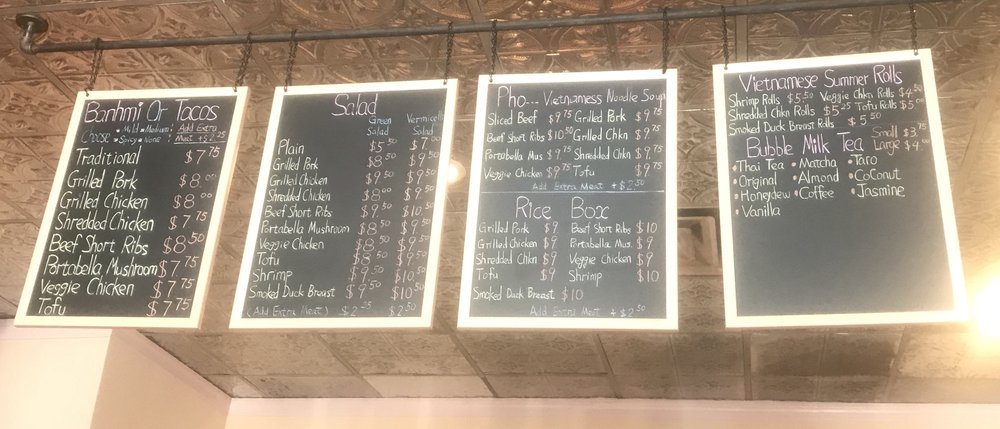 Banhmi Or Tacos
Choose • Mild • Medium
• Spicy • None
Add Extra
Meat +2.25
Traditional $7.75
Grilled Pork $8.00
Grilled Chicken $8.00
Shredded Chicken $7.75
Beef Short Ribs $8.50
Portabella Mushroom $7.75
Veggie Chicken $7.75
Tofu $7.75
Salad
Green Salad Vermicelli Salad
Plain $5.50 $7.00
Grilled Pork $8.50 $9.50
Grilled Chicken $9.50
Shredded Chicken $8.00 $9.50
Beef Short Ribs $9.50 $10.50
Portabella Mushroom $8.50 $9.50
Veggie Chicken $8.50 $9.50
Tofu $8.50 $9.50
Shrimp $9.50 $10.50
Smoked Duck Breast $9.50 $10.50
(Add Extra Meat) $2.25 $2.50
Pho... Vietnamess Noodle Soup
Sliced Beef $9.75 Grilled Pork $9.75
Beef Short Ribs $10.50 Grilled Chkn $9.75
Portabella Mus $9.75 Shredded Chkn $9.75
Veggie Chicken $9.75 Tofu $9.75
Add Extra Meat + $2.50
Rice Box
Grilled Pork $9 Beef Short Ribs $10
Grilled Chicken $9 Portabella Mus. $9
Shredded Chkn $9 Veggie Chicken $9
Tofu $9 Shrimp $10
Smoked Duck Breast $10
Add Extra Meat + $2.50
Vietnamese Summer Rolls
Shrimp Rolls $5.50 Veggie Chkn Rolls $4.50
Shredded Chkn Rolls $5.25 Tofu Rolls $5.00
Smoked Duck Breast Rolls $5.50
Bubble Milk Tea Small $3.75
Large $4.00
• Thai Tea • Matcha • Taro
• Original • Almond • Coconut
• Honeydew • Coffee • Jasmine
• Vanilla